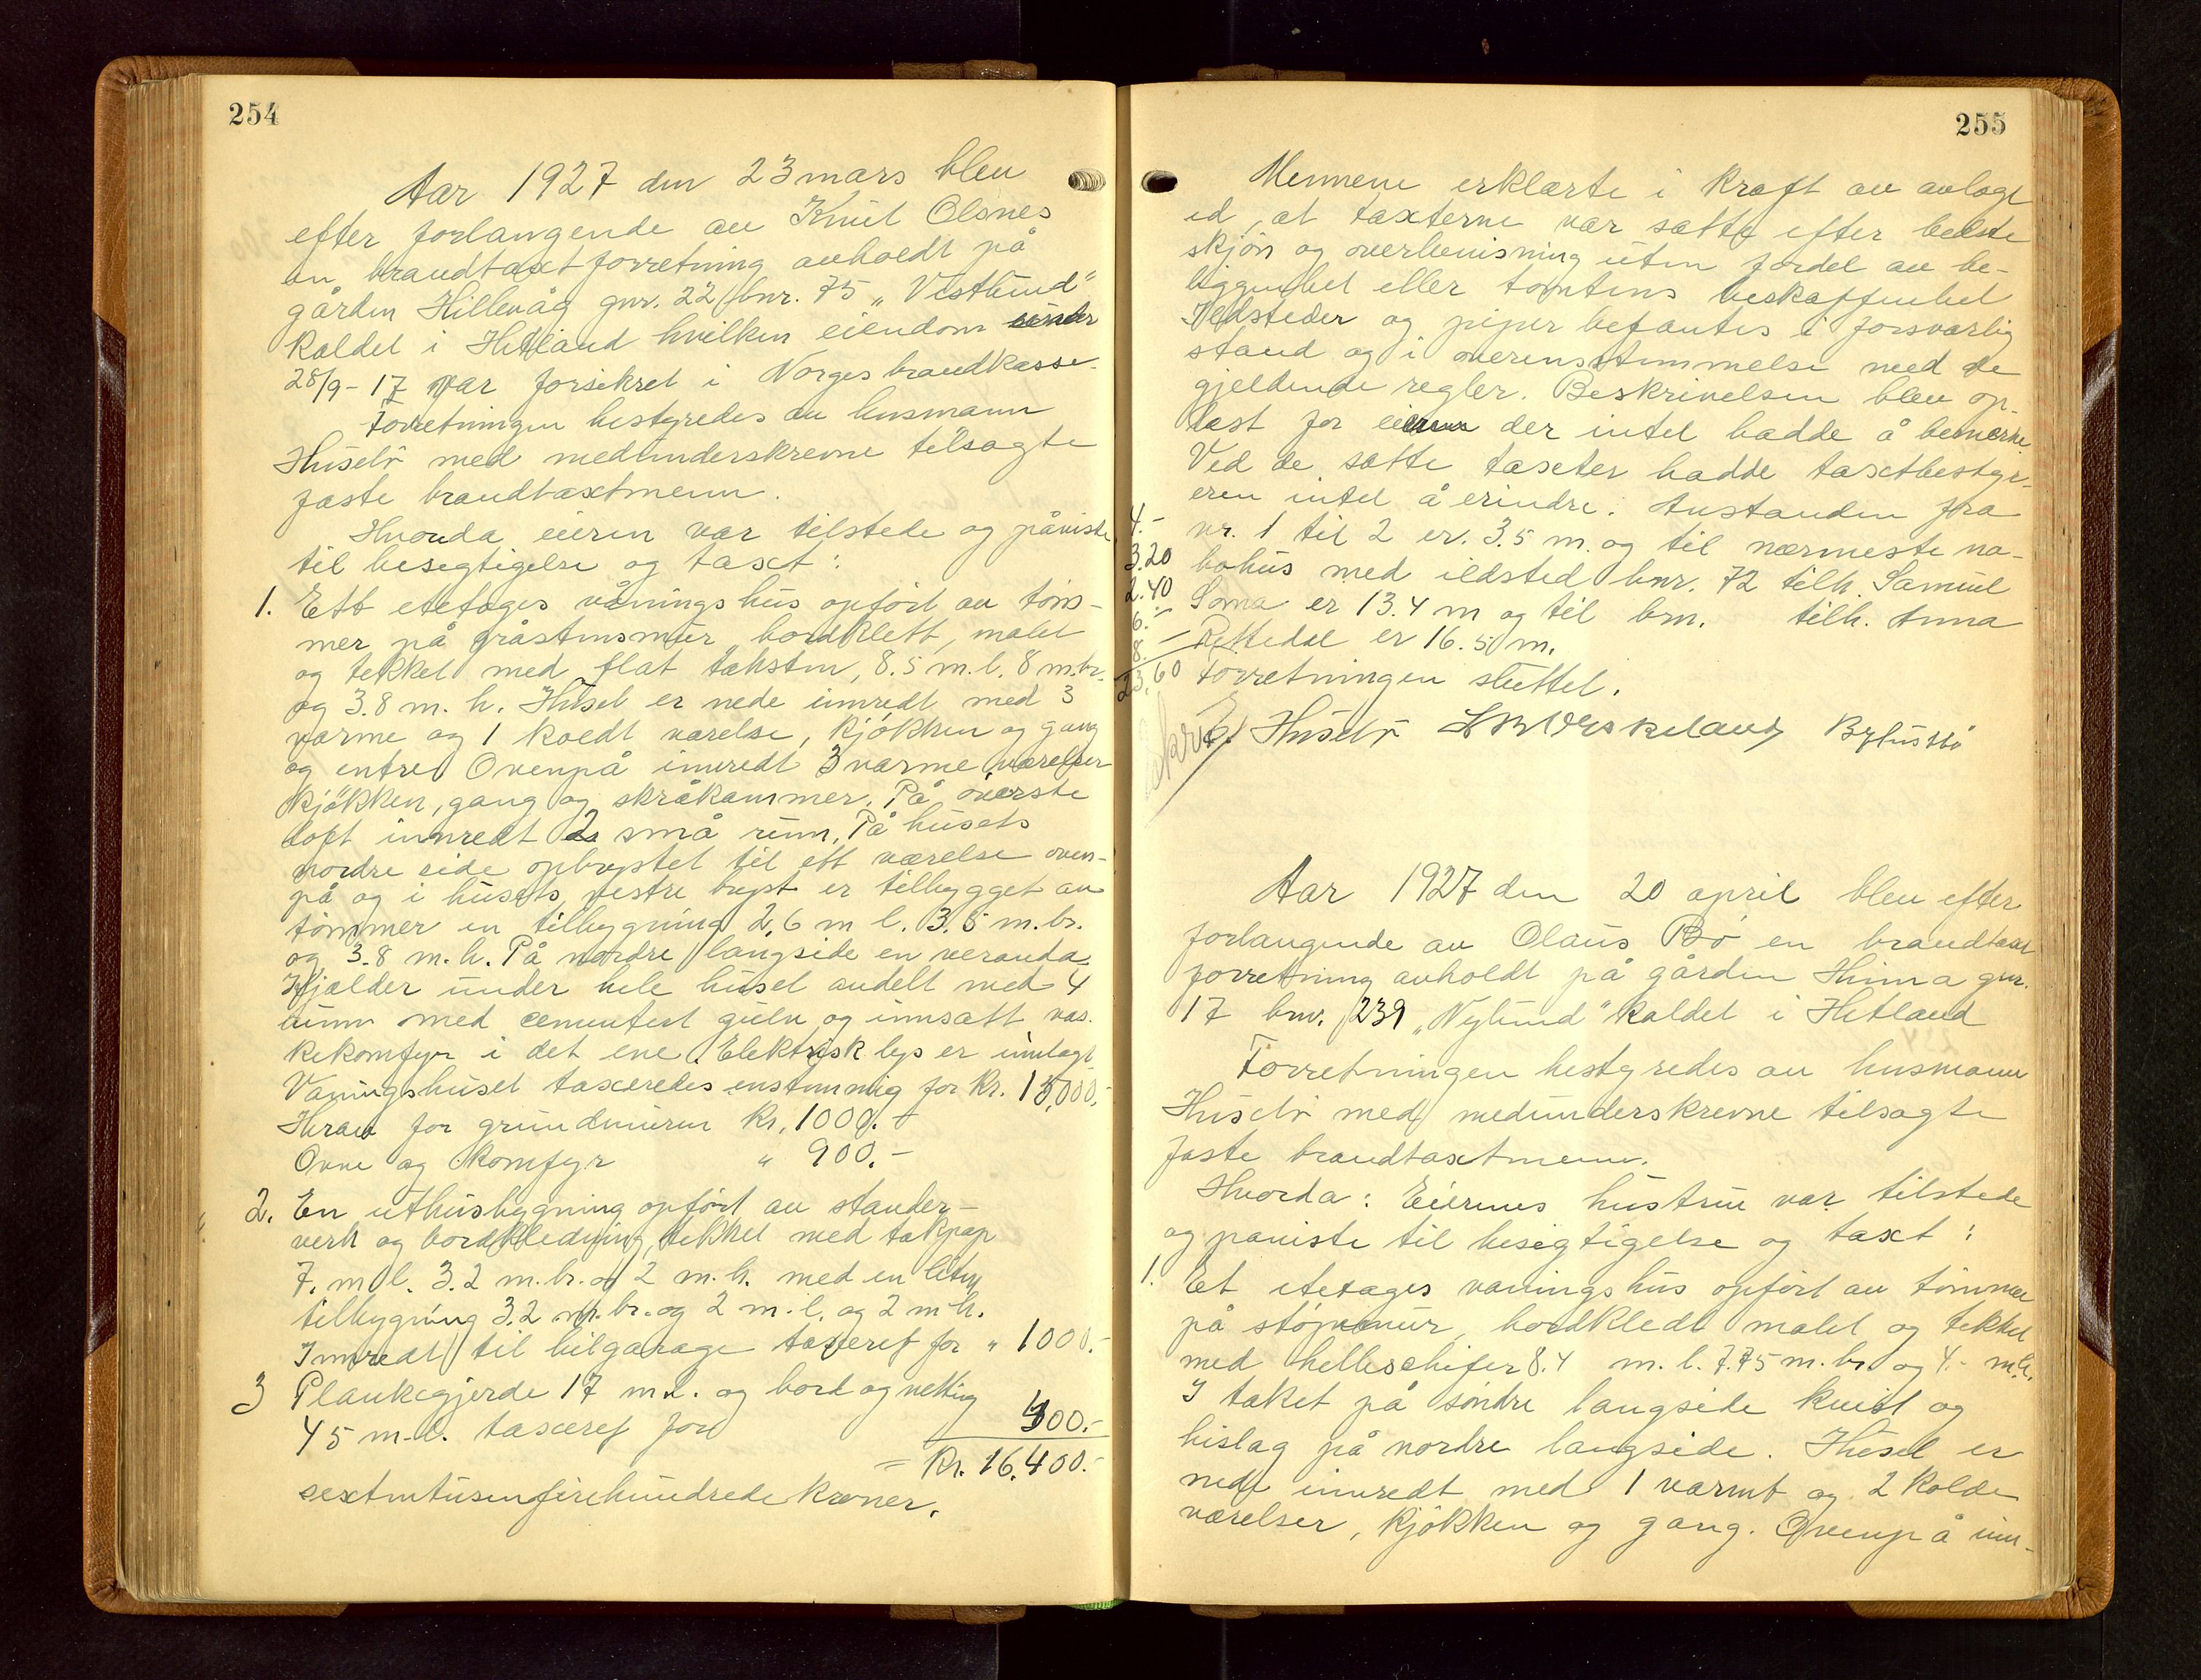 254
Aar 1927 den 23 mars blev
efter forlangende av Knut Olsnes
en brandtaxtforretning avholdt på
gården Hillevåg gnr. 22 bnr. 75 „Vestlund"
kaldet i Hetland hvilken eiendom under
28/9-17 var forsikret i Norges brandkasse.
Forretningen bestyredes av husmann
Husebø med medunderskrevne tilsagte
faste brandtaxtmenn.
Hvorda eieren var tilstede og påviste
til besegtigelse og taxt:
1. Ett etetages våningshus opført av tøm-
mer på gråstensmur, bordklett, malet
og tekket med flat taksten, 8.5 m.l. 8 m.br.
og 3.8 m. h. Huset er nede innredt med 3
varme og 1 koldt værelse, kjøkken og gang
og entre. Ovenpå innredt 3 varme værelser
kjøkken, gang og skråkammer. På øverste
loft innredt 2 små rum. På husets
nordre side opbygtet til ett værelse oven-
på og i husets vestre bygt er tilbygget av
tømmer en tilbygning 2,6 m l. 3.5 m.br.
og 3.8 m.h. På nordre langside en veranda.
Kjælder under hele huset avdelt med 4
rum med cementert gulv og innsatt vas-
kekomfyr i det ene. Elektrisk lys er innlagt
Våningshuset taxeredes enstemmig for kr. 15,000.-
Herav for grundmuren kr. 1000.-
Ovne og komfyr " 900.-
2. En uthusbygning opført av stander-
verk og bordkledning, tekket med takpap
7. m l. 3.2 m.br. og 2 m.h. med en liten
tilbygning 3.2 m.br. og 2 m.l. og 2 m h.
Innredt til bilgarage taxeret for " 1000.-
3 Plankegjerde 17 m.l. og bord og netting
45 m.l. taxeret for 400.-
= Kr. 16.400.-
sextentusenfirehundrede kroner.
255
Mennene erklærte i kraft av avlagt
ed, at taxterne var satte efter bedste
skjøn og overbevisning uten fordel av be-
liggenhet eller tomtens beskaffenhet
Ildsteder og piper befantes i forsvarlig
stand og i overensstemmelse med de
gjeldende regler. Beskrivelsen blev op-
læst for eieren der intet hadde å bemerke.
Ved de satte taxter hadde taxtbestyr-
eren intet å erindre. Avstanden fra
4.- nr. 1 til 2 er 3.5 m. og til nærmeste na-
3.20 bohus med ildsted bnr. 72 tilh. Samuel
2.40 Soma er 13.4 m og til bnr. tilh. Anna
6.-
8.- Rettedal er 16.5 m.
23,60 Forretningen sluttet.
Husebø
Aar 1927 den 20 april blev efter
forlangende av Olaus Bø en brandtaxt
forretning avholdt på gården Hinna gnr.
17 bnr. 239 „Nylund" kaldet i Hetland
Forretningen bestyredes av husmann
Husebø med medunderskrevne tilsagte
faste brandtaxtmenn.
Hvorda: Eierens hustru var tilstede
og paaviste til besigtigelse og taxt:
1. Et etetages vaningshus opført av tømmer
på støpemur, bordkledt malet og tekket
med helleschifer 8.4 m. l. 7.75 m. br. og 4.- m.h.
I taket på søndre langside kvist og
bislag på nordre langside. Huset er
nede innredt med 1 varmt og 2 kolde
værelser, kjøkken og gang. Ovenpå inn-